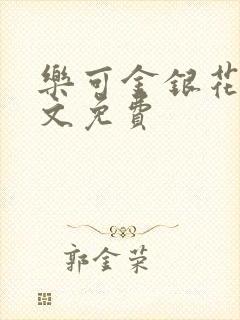 樂可金銀花
文免費
郭金荣